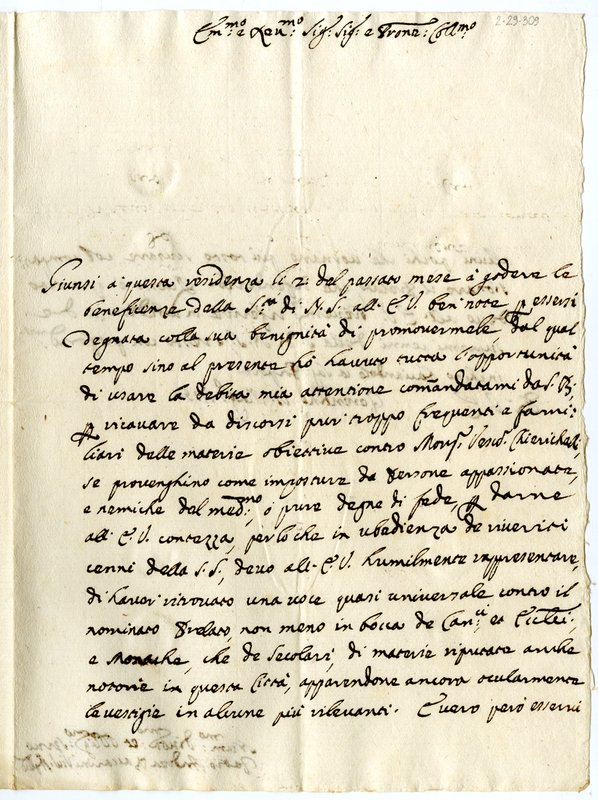 2-29-309
Em.mo e Rev.mo Sig.r Sig.r e Pron.e Coll.mo
Giunsi à questa residenza li 2. del passato mese à godere le
beneficenze della S.tà di N. S. all' E. V. ben note, p essersi
degnata colla sua benignità di promovermele, dal qual
tempo sino al presente hò havuto tutta l'opportunità
di usare la debita mia attentione comandatami da S. B.
p ricavare da discorsi pur troppo frequenti e fami:
liari delle materie obiettive contro Mons.r Vesc.o Chiericheli,
se provenghino come imposture da Persone appassionate,
e nemiche del med.mo, ò pure degne di fede, p darne
all' E. V. contezza, perloche in ubedienza de riveriti
cenni della S. S., devo all' E. V. humilmente rappresentare,
di haver ritrovato una voce quasi universale contro il
nominato Prelato, non meno in bocca de Can.ci et Eccle.ci
e Monache, che de Secolari, di materie riputate anche
notorie in questa Città, apparendone ancora ocularmente
le vestigie in alcune più rilevanti. E vero però esservi